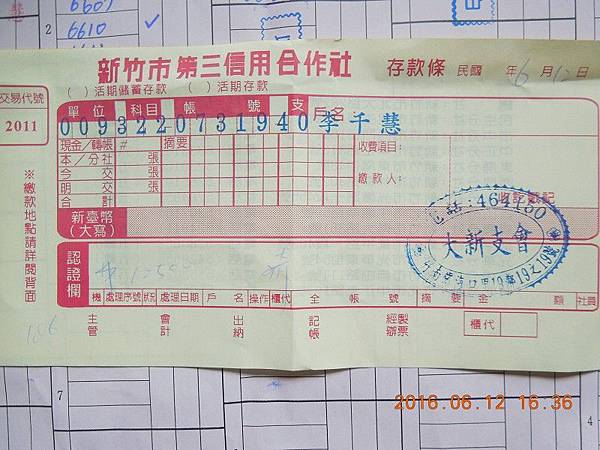 6607
2 6610
新竹市 第三信用合作社 存款條 民國 年 6 月 12 日
( ) 活期儲蓄存款 ( ) 活期存款
交易代號
2011
單位 科目 帳號 支 戶名
0093220731940李千慧
現金/轉帳 # 摘要 收費項目:
本/分社 張
今交 張 繳款人:
明交 張
合計
電話:464150
大新支會
新臺幣
(大寫)
※繳款地點請詳閱背面
認證欄
機 處理序號 狀況 處理日期 戶名 操作 櫃代 全帳號 摘要 金額 社員
主管 會計 出納 記帳 經製辦票 櫃代
186
7
4
2016.06.12 16:36